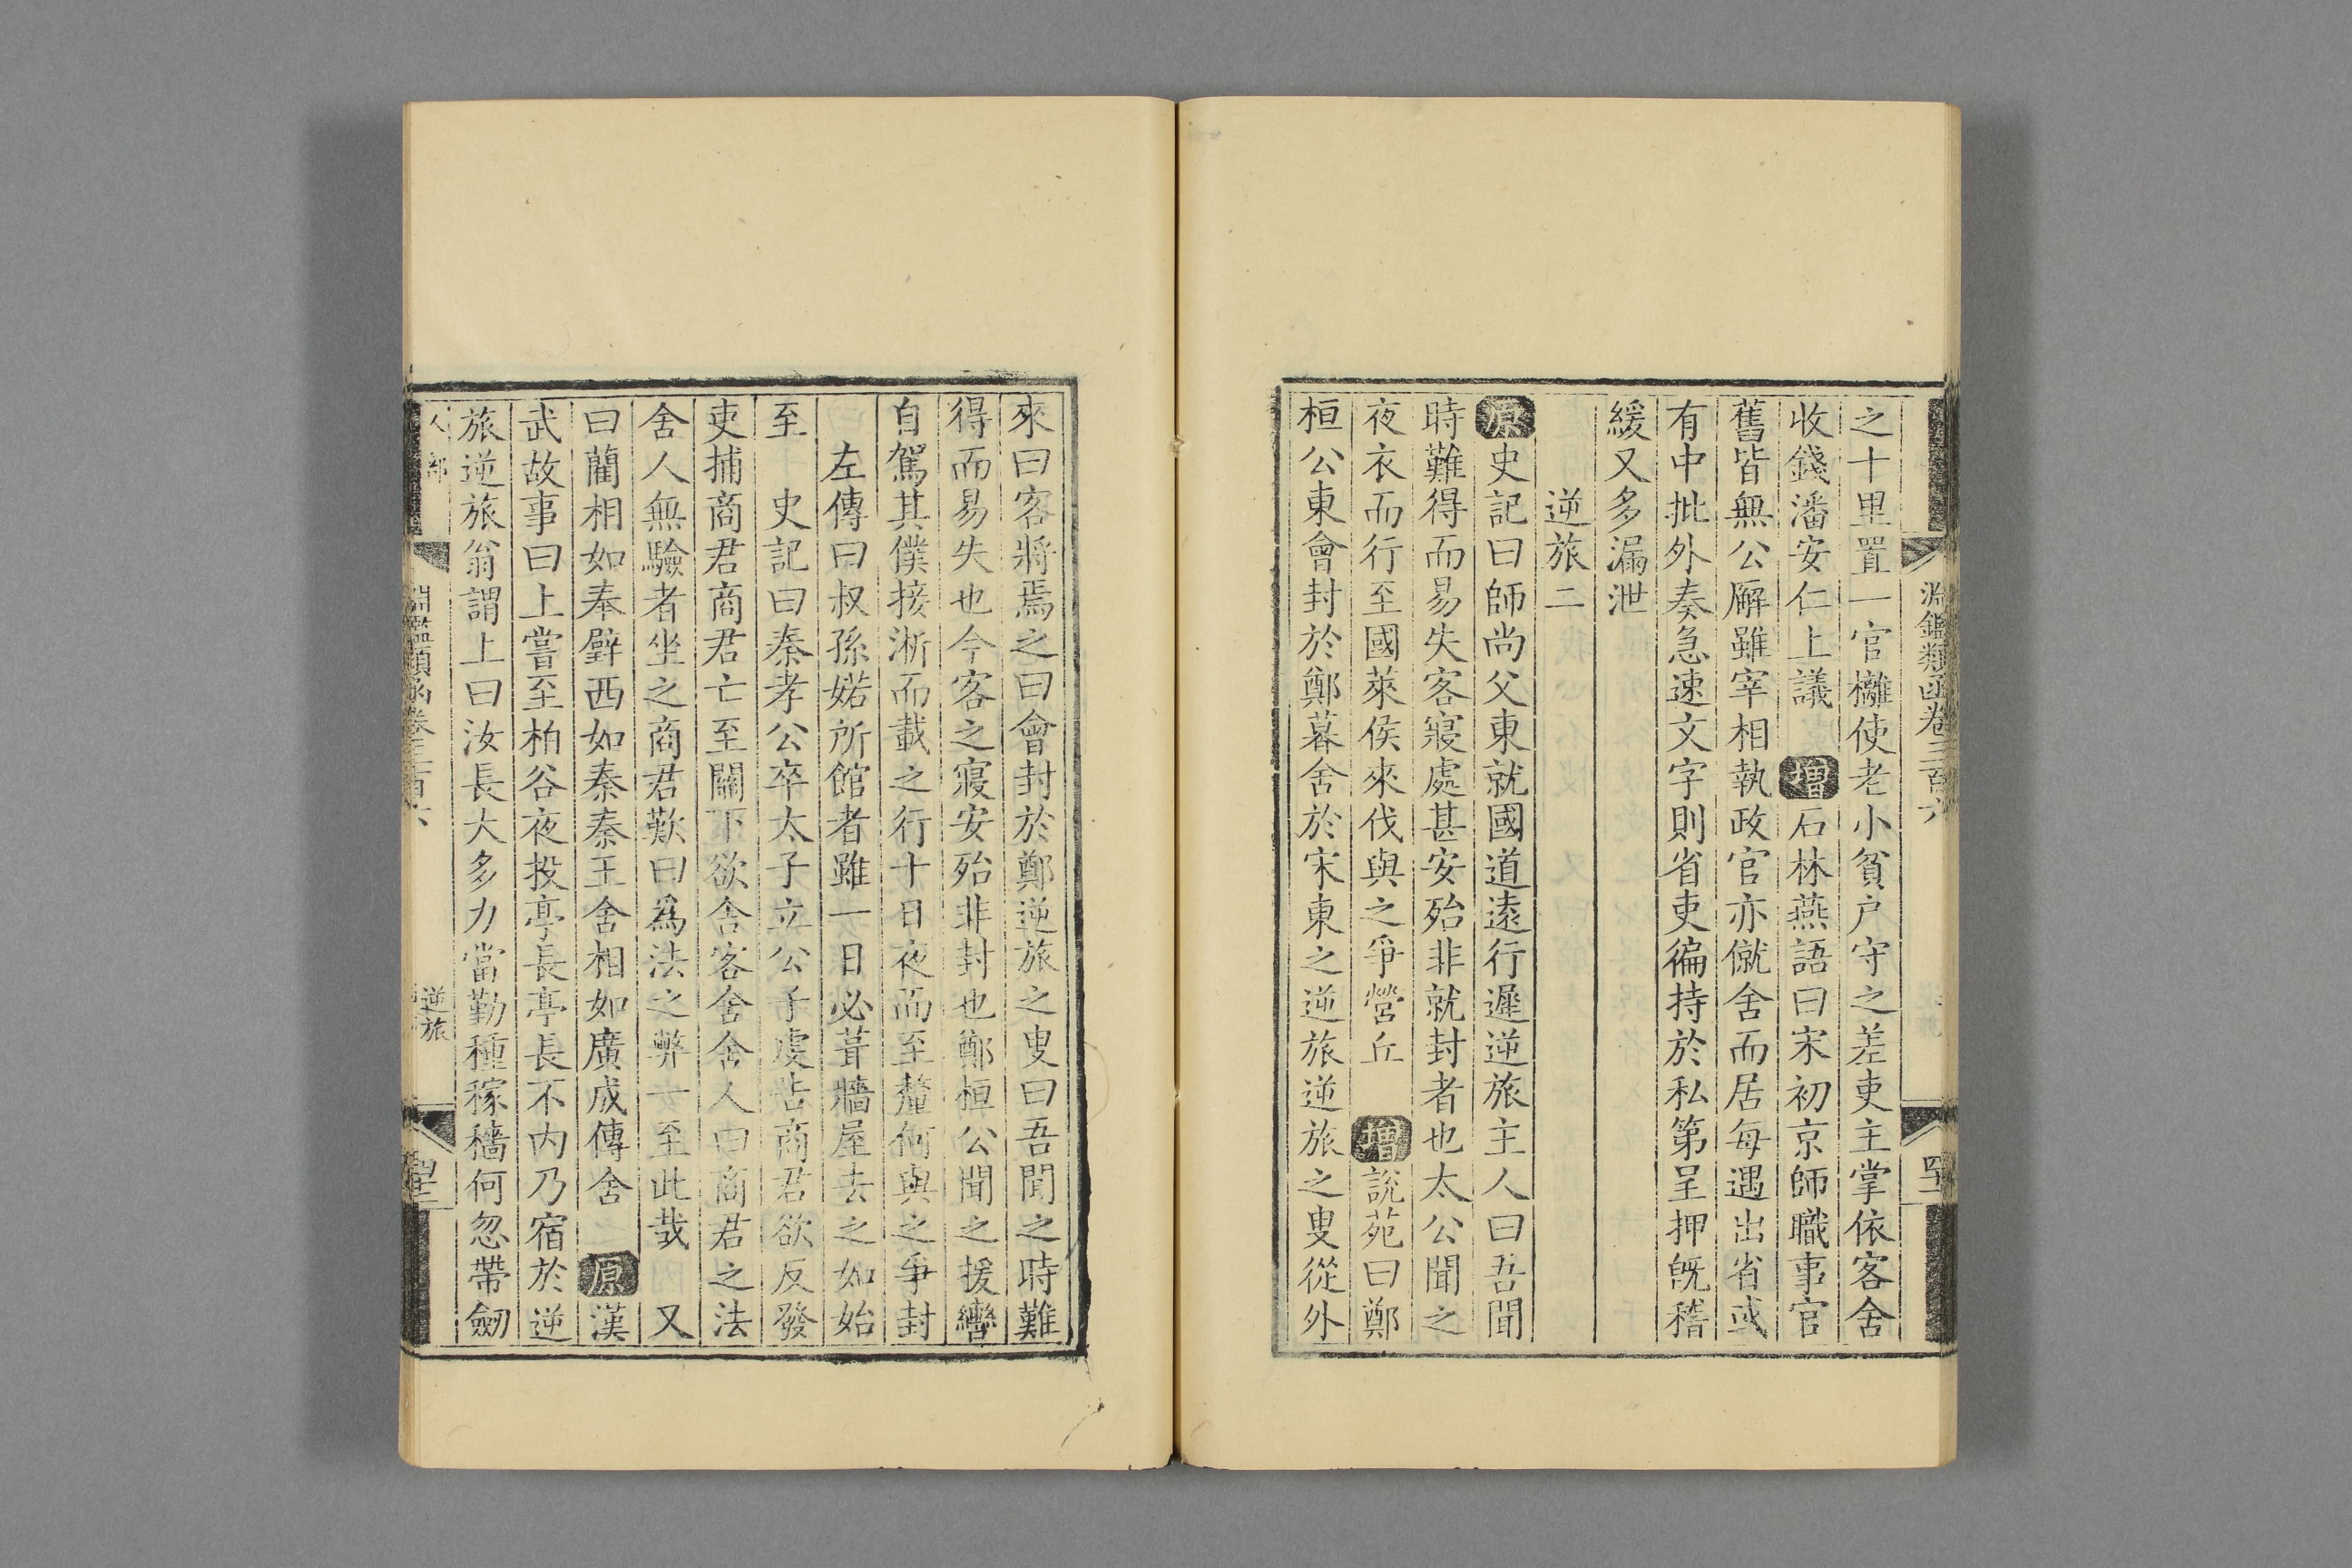 淵鑑類函卷三百六
之十里置一官𣟄使老小貧户守之差吏主掌依客舍
收錢潘安仁上議 增石林燕語曰宋初京師職事官
舊皆無公廨雖宰相執政官亦僦舍而居每遇出省或
有中批外奏急速文字則省吏徧持於私第呈押旣稽
緩又多漏泄
逆旅二
原史記曰師尚父東就國道遠行遲逆旅主人曰吾聞
時難得而易失客寢處甚安殆非就封者也太公聞之
夜衣而行至國萊侯來伐與之爭營丘 增說苑曰鄭
桓公東會封於鄭暮舍於宋東之逆旅逆旅之叟從外
來曰客將焉之曰會封於鄭逆旅之叟曰吾聞之時難
得而易失也今客之寢安殆非封也鄭桓公聞之援轡
自駕其僕接淅而載之行十日夜而至釐何與之爭封
左傳曰叔孫婼所館者雖一日必葺牆屋去之如始
至 史記曰秦孝公卒太子立公子虔告商君欲反發
吏捕商君商君亡至關下欲舍客舍舍人曰商君之法
舍人無驗者坐之商君歎曰爲法之弊一至此哉 又
曰藺相如奉璧西如秦秦王舍相如廣成傳舍 原漢
武故事曰上嘗至柏谷夜投亭長亭長不内乃宿於逆
旅逆旅翁謂上曰汝長大多力當勤種稼穡何忽帶劒
人部 淵鑑類函卷三百六 逆旅